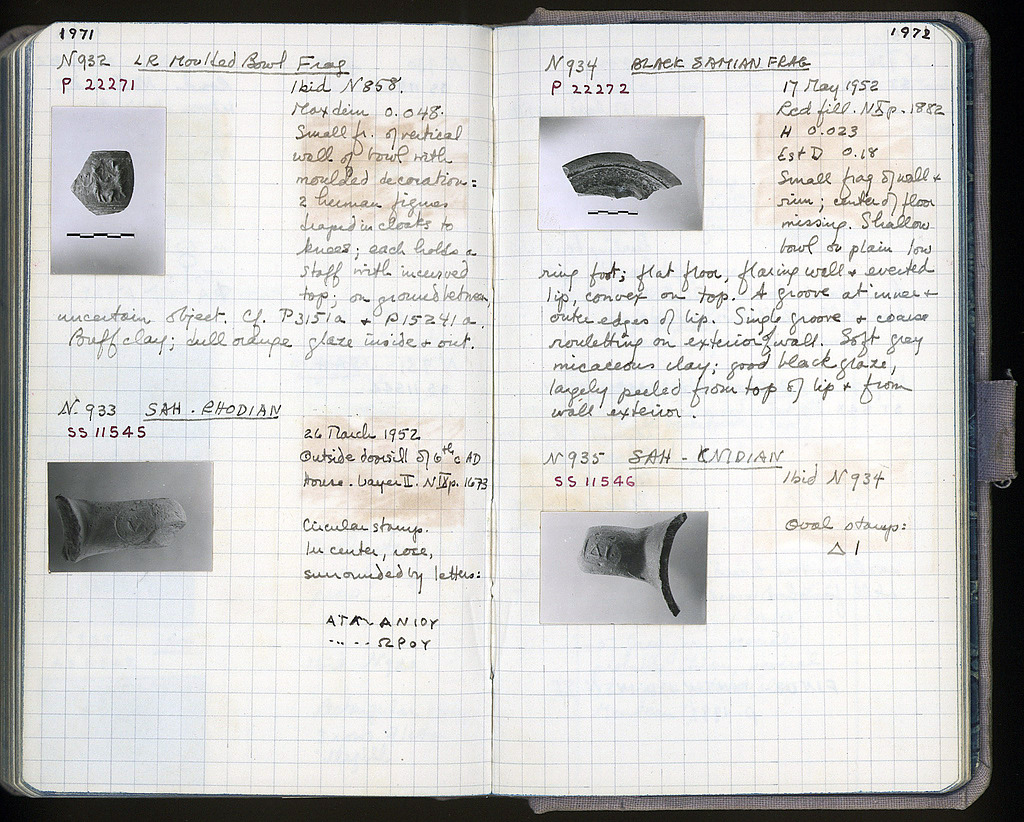 1971
N 932 LR Moulded Bowl Frag
P 22271
Ibid N 868.
Max dim 0.048.
Small fr. of vertical
wall of bowl with
moulded decoration:
2 human figures
draped in cloaks to
knees; each holds a
staff with incurved
top; on ground between,
uncertain object. Cf. P3151a + P15241a.
Buff clay; dull orange glaze inside + out.
N 933 SAH - RHODIAN
SS 11545
26 March 1952
Outside doorsill of 6th c AD
House. Layer II. N IX p. 1673
Circular stamp.
In center, rose,
surrounded by letters:
ΑΤΑ ΑΝΙΟΥ
..... ΩΡΟΥ
1972
N 934 BLACK SAMIAN FRAG
P 22272
17 May 1952
Red fill. N X p. 1882
H 0.023
Est D 0.18
Small frag of wall +
rim; center of floor
missing. Shallow
bowl on plain low
ring foot; flat floor, flaring wall + everted
lip, convex on top. A groove at inner +
outer edges of lip. Single groove + coarse
rouletting on exterior of wall. Soft grey
micaceous clay; good black glaze,
largely peeled from top of lip + from
wall exterior.
N 935 SAH - KNIDIAN
SS 11546
Ibid N 934
Oval stamp:
Δ Ι